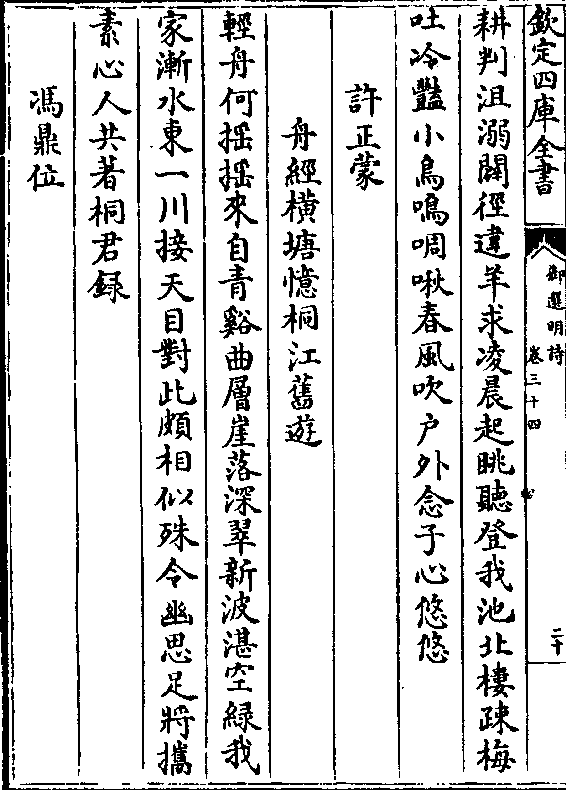 欽定四庫全書
御選明詩
卷三十四
二十
耕判沮溺闢徑違羊求凌晨起眺聽登我池北樓疎梅
吐冷豔小鳥鳴啁啾春風吹户外念子心悠悠
許正蒙
舟經橫塘憶桐江舊遊
輕舟何揺揺來自青谿曲層崖落深翠新波湛空緑我
家漸水東一川接天目對此頗相似殊令幽思足將攜
素心人共著桐君録
馮鼎位